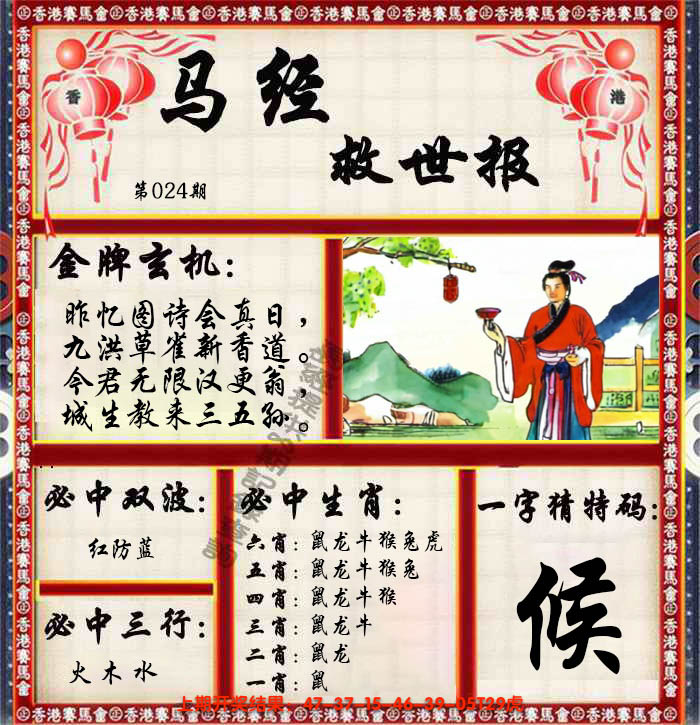 香港賽馬會
香
港
马经
救世报
第024期
金牌玄机：
昨忆图诗会真日，
九洪草雀新香道。
今君无限汉更翁，
城生教来三五孙。
必中双波：
红防蓝
必中三行：
火木水
必中生肖：
六肖：鼠龙牛猴兔虎
五肖：鼠龙牛猴兔
四肖：鼠龙牛猴
三肖：鼠龙牛
二肖：鼠龙
一肖：鼠
一字猜特码：
候
上期开奖结果：47-37-15-46-39-05T29虎